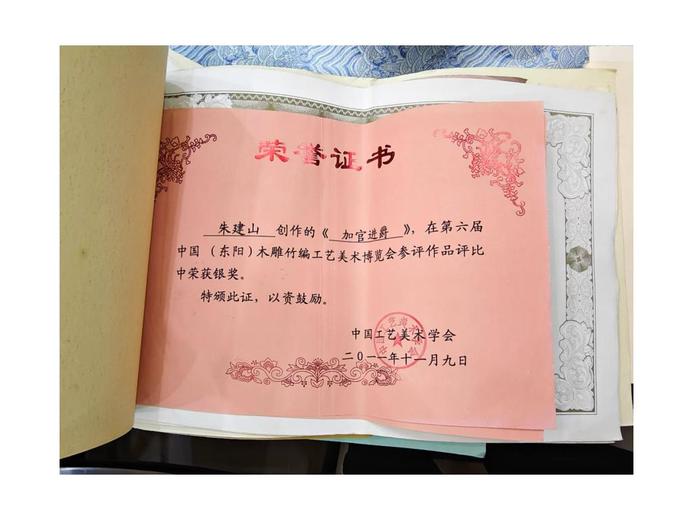 荣誉证书
朱建山 创作的《 加官进爵 》,在第六届
中国(东阳)木雕竹编工艺美术博览会参评作品评比
中荣获银奖。
特颁此证,以资鼓励。
中国工艺美术学会
二〇一一年十一月九日